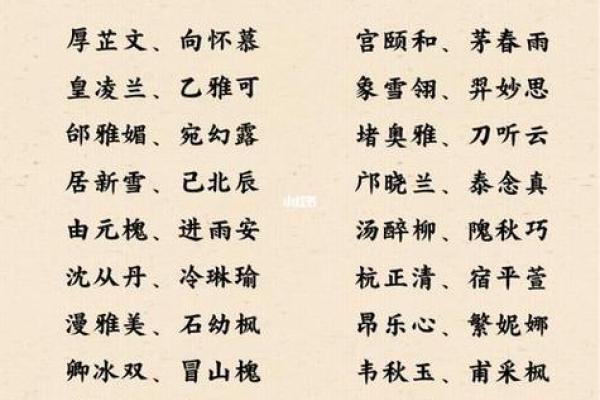 厚芷文、向怀慕
皇凌兰、乙雅可
邰雅媚、宛幻露
居新雪、己北辰
由元槐、进雨安
沈从丹、冷琳瑜
漫雅美、石幼枫
卿冰双、冒山槐
宫颐和、茅春雨
象雪翎、羿妙思
堵奥雅、刀听云
邝晓兰、泰念真
汤醉柳、隗秋巧
杭正清、宿平萱
昂乐心、繁妮娜
韦秋玉、甫采枫
小红书